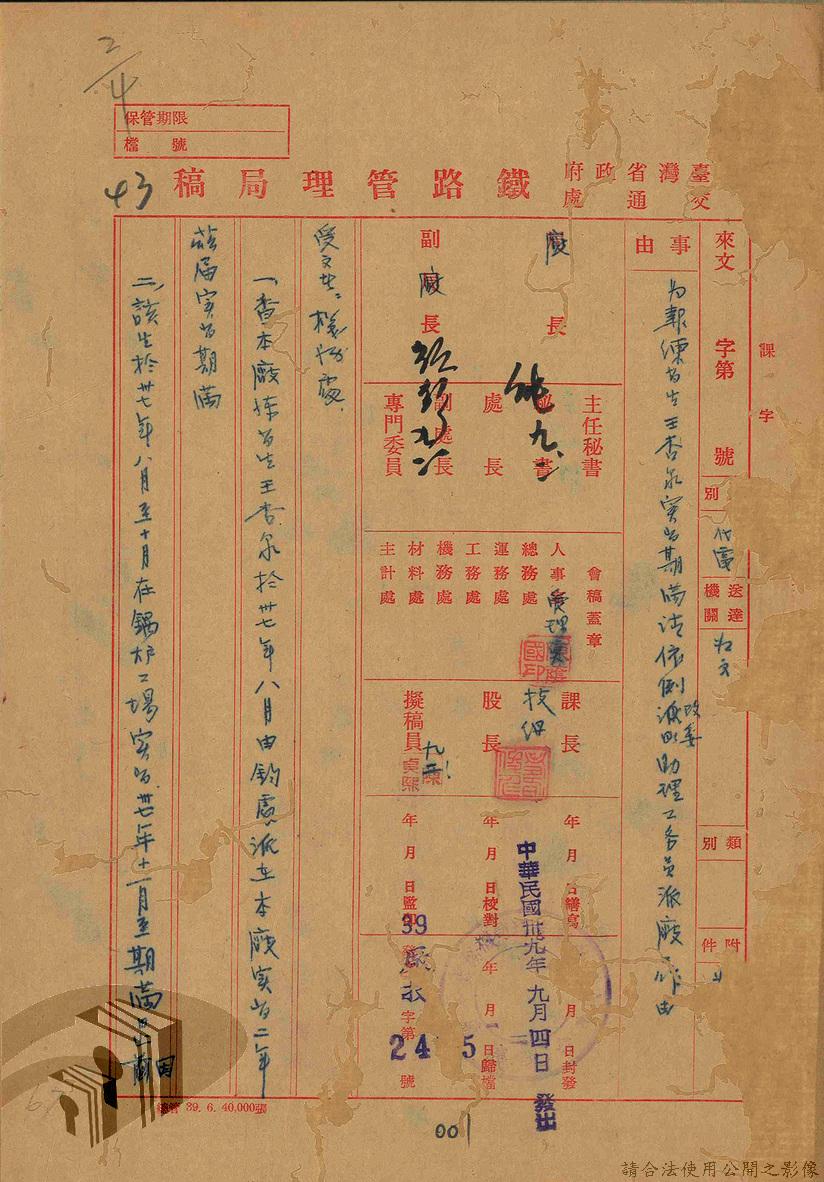 2/4
保管期限
檔號
43
臺灣省政府交通處鐵路管理局稿
課
字
來文 字第 號
別
代電
送達機關
右文
類別
附件
事由
為報練習生王杏泉实習期滿請依例派改委助理工务員派廠工作由
廠長
副廠長
主任秘書
秘書
處長
副處長
專門委員
會稿蓋章
人事室
總務處
運務處
工務處
機務處
材料處
主計處
課長
股長
擬稿員
年 月 日繕寫
年 月 日校對
年 月 日監印
月 日封發
年 月 日歸檔
中華民國卅九年九月四日發出
39
字第 號
245
受文者：機務處
一、查本廠练習生王杏泉於卅七年八月由鈞處派在本廠实習二年
兹屆实習期滿
二、該生於卅七年八月至十月在鍋炉工場实習卅七年十一月至期滿日止
總管 39. 6. 40,000張
001
請合法使用公開之影像